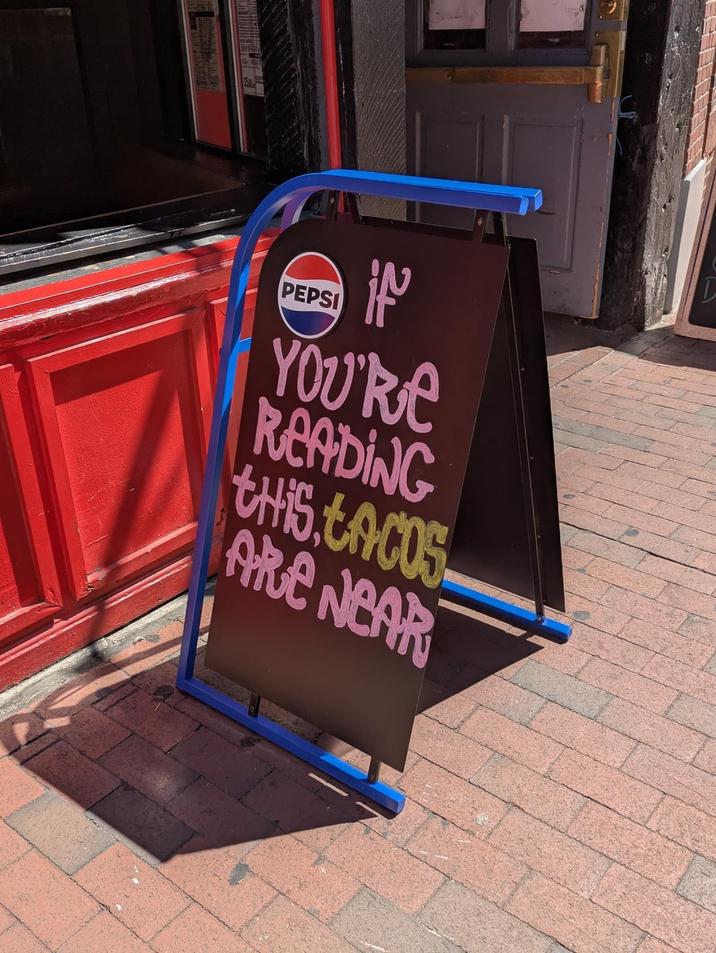 PEPSI
if
YOU'RE
READiNG
tHiS, tACOS
ARE NEAR